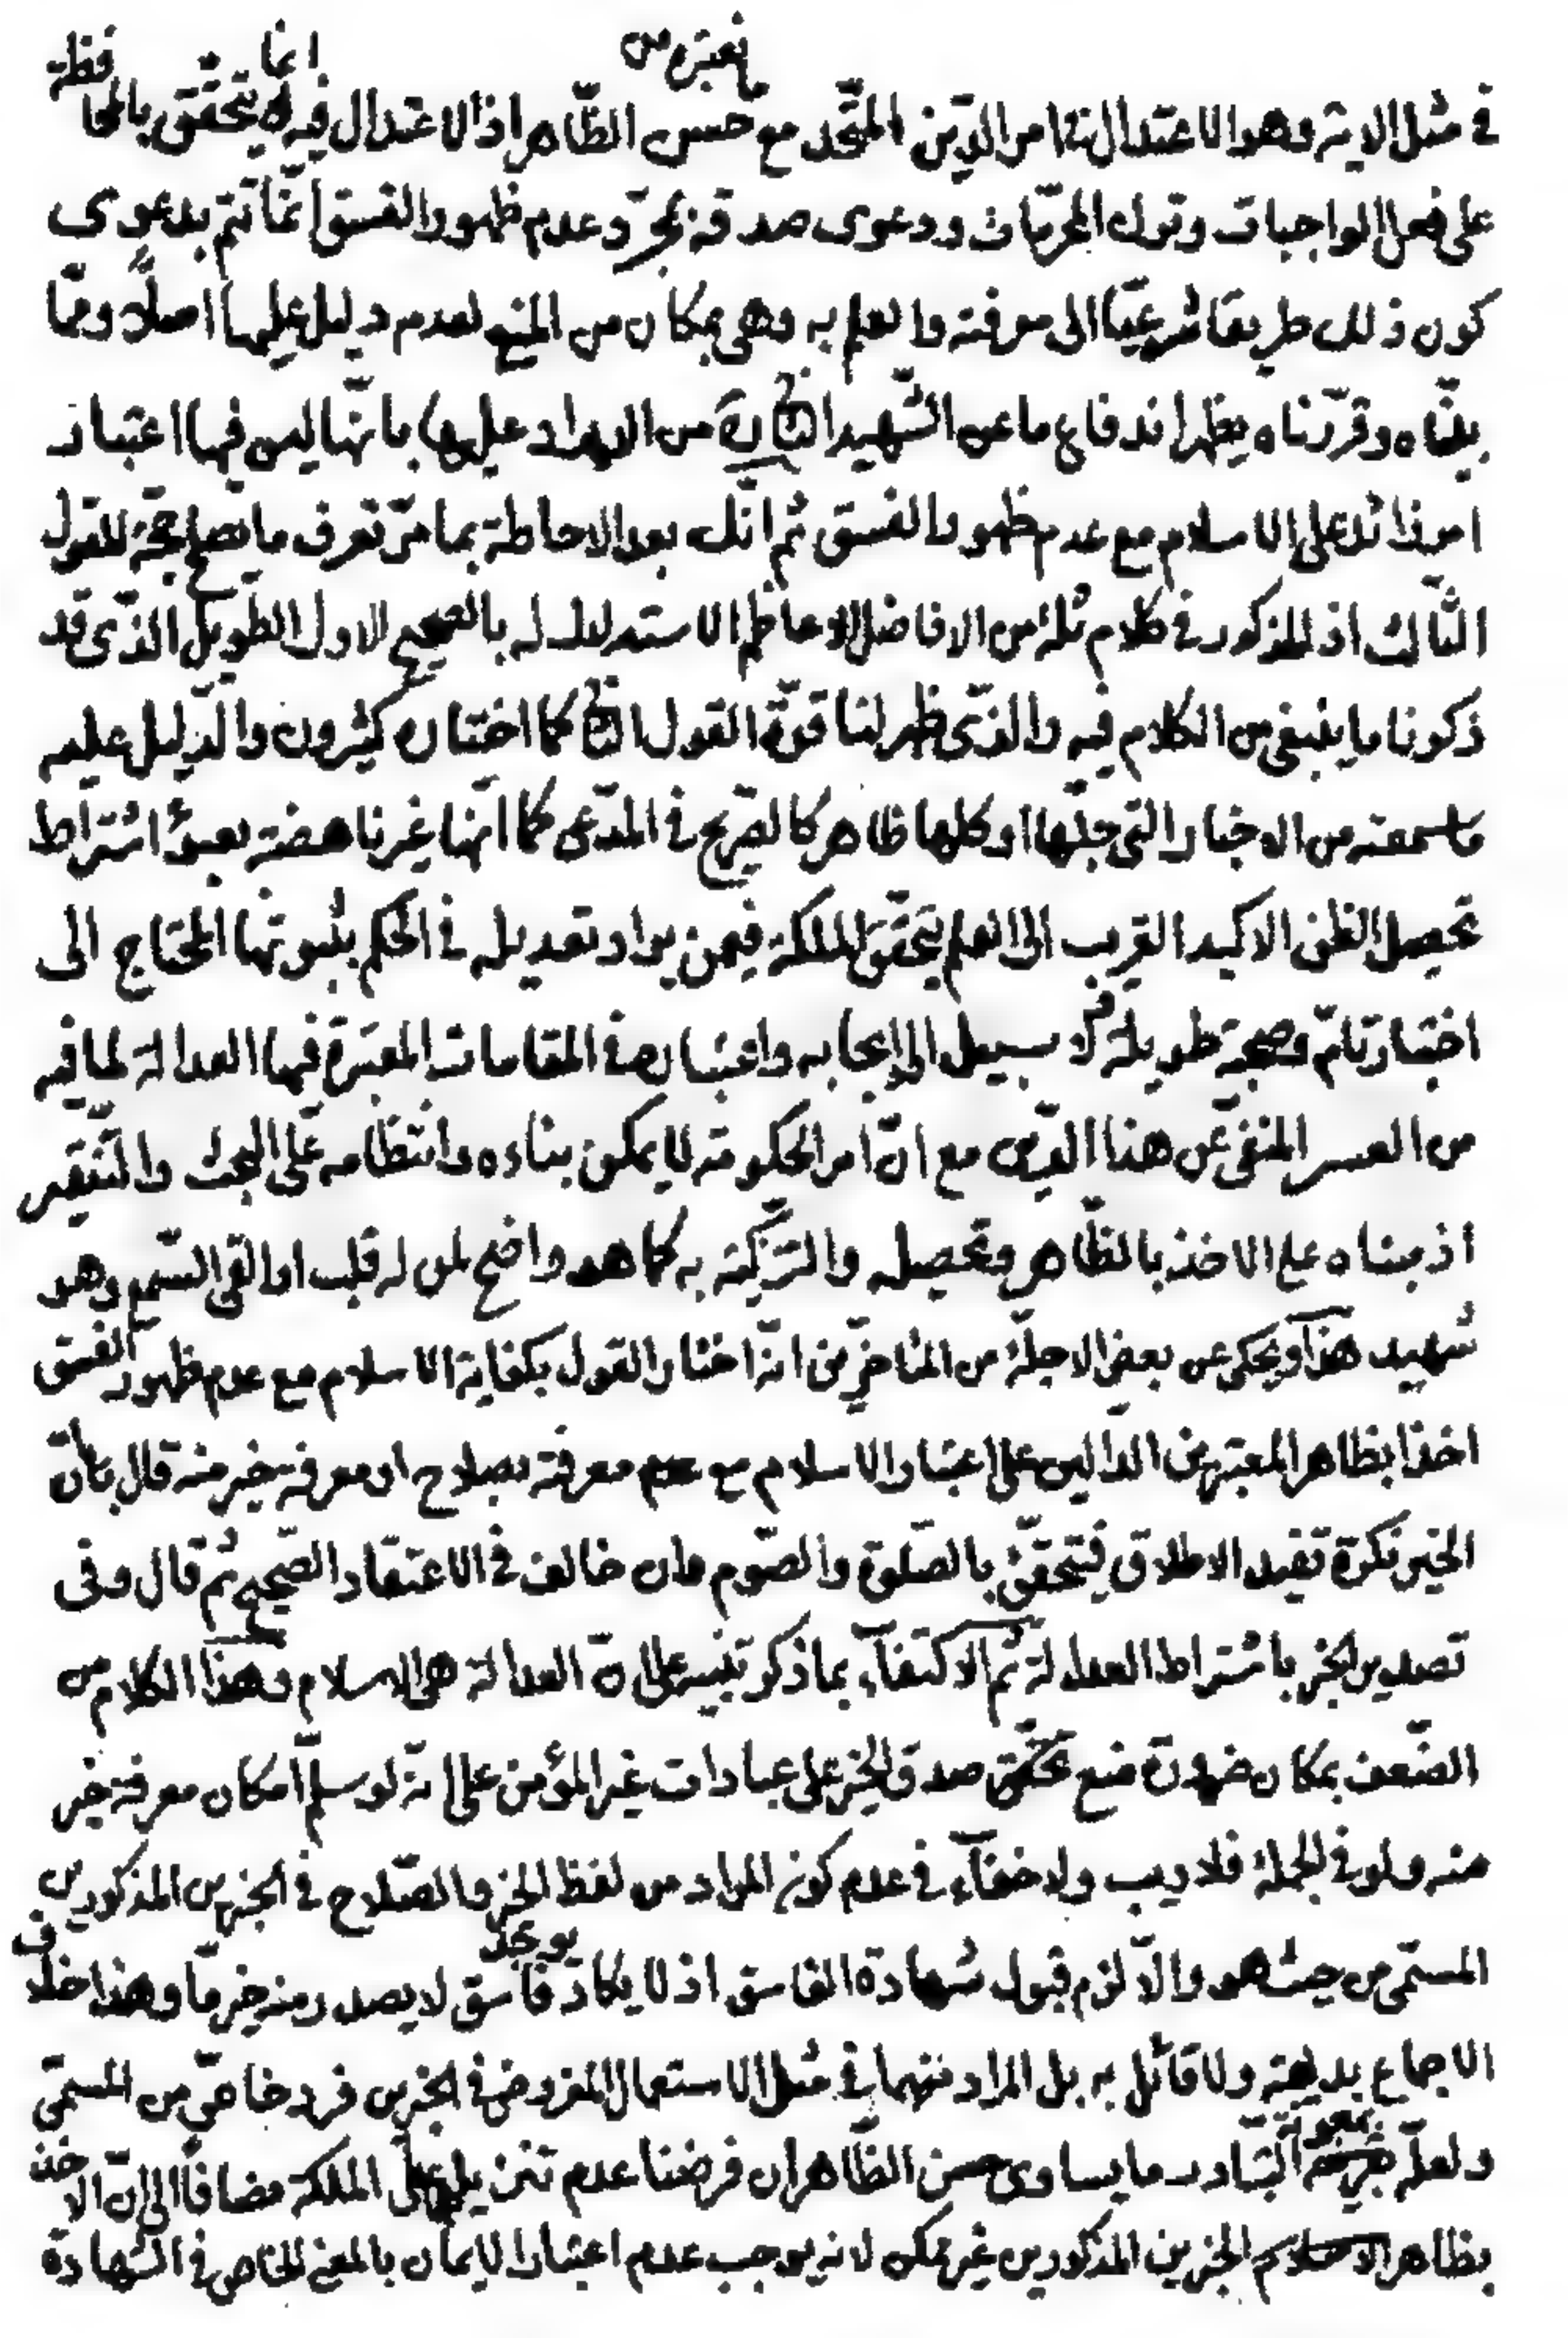 يعتبر من
في مثل الاية وهو الاعتدال التام من الدين المتحد مع حسن الظاهر اذ الاعتدال فيه انما يتحقق بالمحافظة
على فعل الواجبات وترك المحرمات ودعوى صدقه بمجرد عدم ظهور الفسق انما تتم بدعوى
كون ذلك طريقا شرعيا الى معرفته والعلم به وهى بمكان من المنع لعدم دليل عليها اصلا ومما
بيناه وقررناه يظهر اندفاع ما عن الشهيد الثانى ره من الايراد عليها بانها ليس فيها اعتبار
امر زائد على الاسلام مع عدم ظهور الفسق ثم انك بعد الاحاطة بما مر تعرف ما يصلح حجة للقول
الثالث اذ المذكور في كلام ثلة من الافاضل الاعاظم الاستدلال له بالصحيح الاول الطويل الذى قد
ذكرنا ما ينبغى من الكلام فيه والذى ظهر لنا قوة القول الثانى كما اختاره كثيرون والدليل عليه
ما سمعته من الاخبار التى جلها او كلها ظاهر كالصريح في المدعى كما انها غير ناهضة بعبؤ اشتراط
تحصيل الظن الاكيد القريب الى العلم بتحقق الملكة فيمن يراد تعديله في الحكم بثبوتها المحتاج الى
اختبار تام وصحبة طويلة لا سبيل الى ايجابه واعتباره في المقامات المعتبرة فيها العدالة لما فيه
من العسر المنفى عن هذا الدين مع ان امر الحكومة لا يمكن بناءه وانتظامه على البحث والتنقير
اذ مبناه على الاخذ بالظاهر وتحصيله والتزكية به كما هو واضح لمن له قلب او القى السمع وهو
شهيد هذا ويحكى عن بعض الاجلة من المتاخرين انه اختار القول بكفاية الاسلام مع عدم ظهور الفسق
اخذا بظاهر المعتبرين الدالين على اعتبار الاسلام مع معرفته بصلاح او معرفة خير منه قال بان
الخير نكرة تفيد الاطلاق فيتحقق بالصلوة والصوم وان خالف في الاعتقاد الصحيح ثم قال وفى
تصدير الخبر باشتراط العدالة ثم الاكتفاء بما ذكر تنبيه على ان العدالة هى الاسلام وهذا الكلام من
الضعف بمكان ضرورة منع تحقق صدق الخير على عبادات غير المؤمن على انه لو سلم امكان معرفة خير
منه ولو في الجملة فلا ريب ولا خفاء في عدم كون المراد من لفظ الخير والصلاح في الخبرين المذكورين
المسمى من حيث هو والا لزم قبول شهادة الفاسق اذ لا يكاد يوجد فاسق لا يصدر منه خير ما وهذا خلاف
الاجماع بديهة ولا قائل به بل المراد منهما في مثل الاستعمال المفروض في الخبرين فرد خاص من المسمى
ولعله بمعونة التبادر ما يساوى حسن الظاهر ان فرضنا عدم تنزيلهما على الملكة مضافا الى ان الاخذ
بظاهر الخبرين المذكورين غير ممكن لانه يوجب عدم اعتبار الايمان بالمعنى الخاص في الشهادة